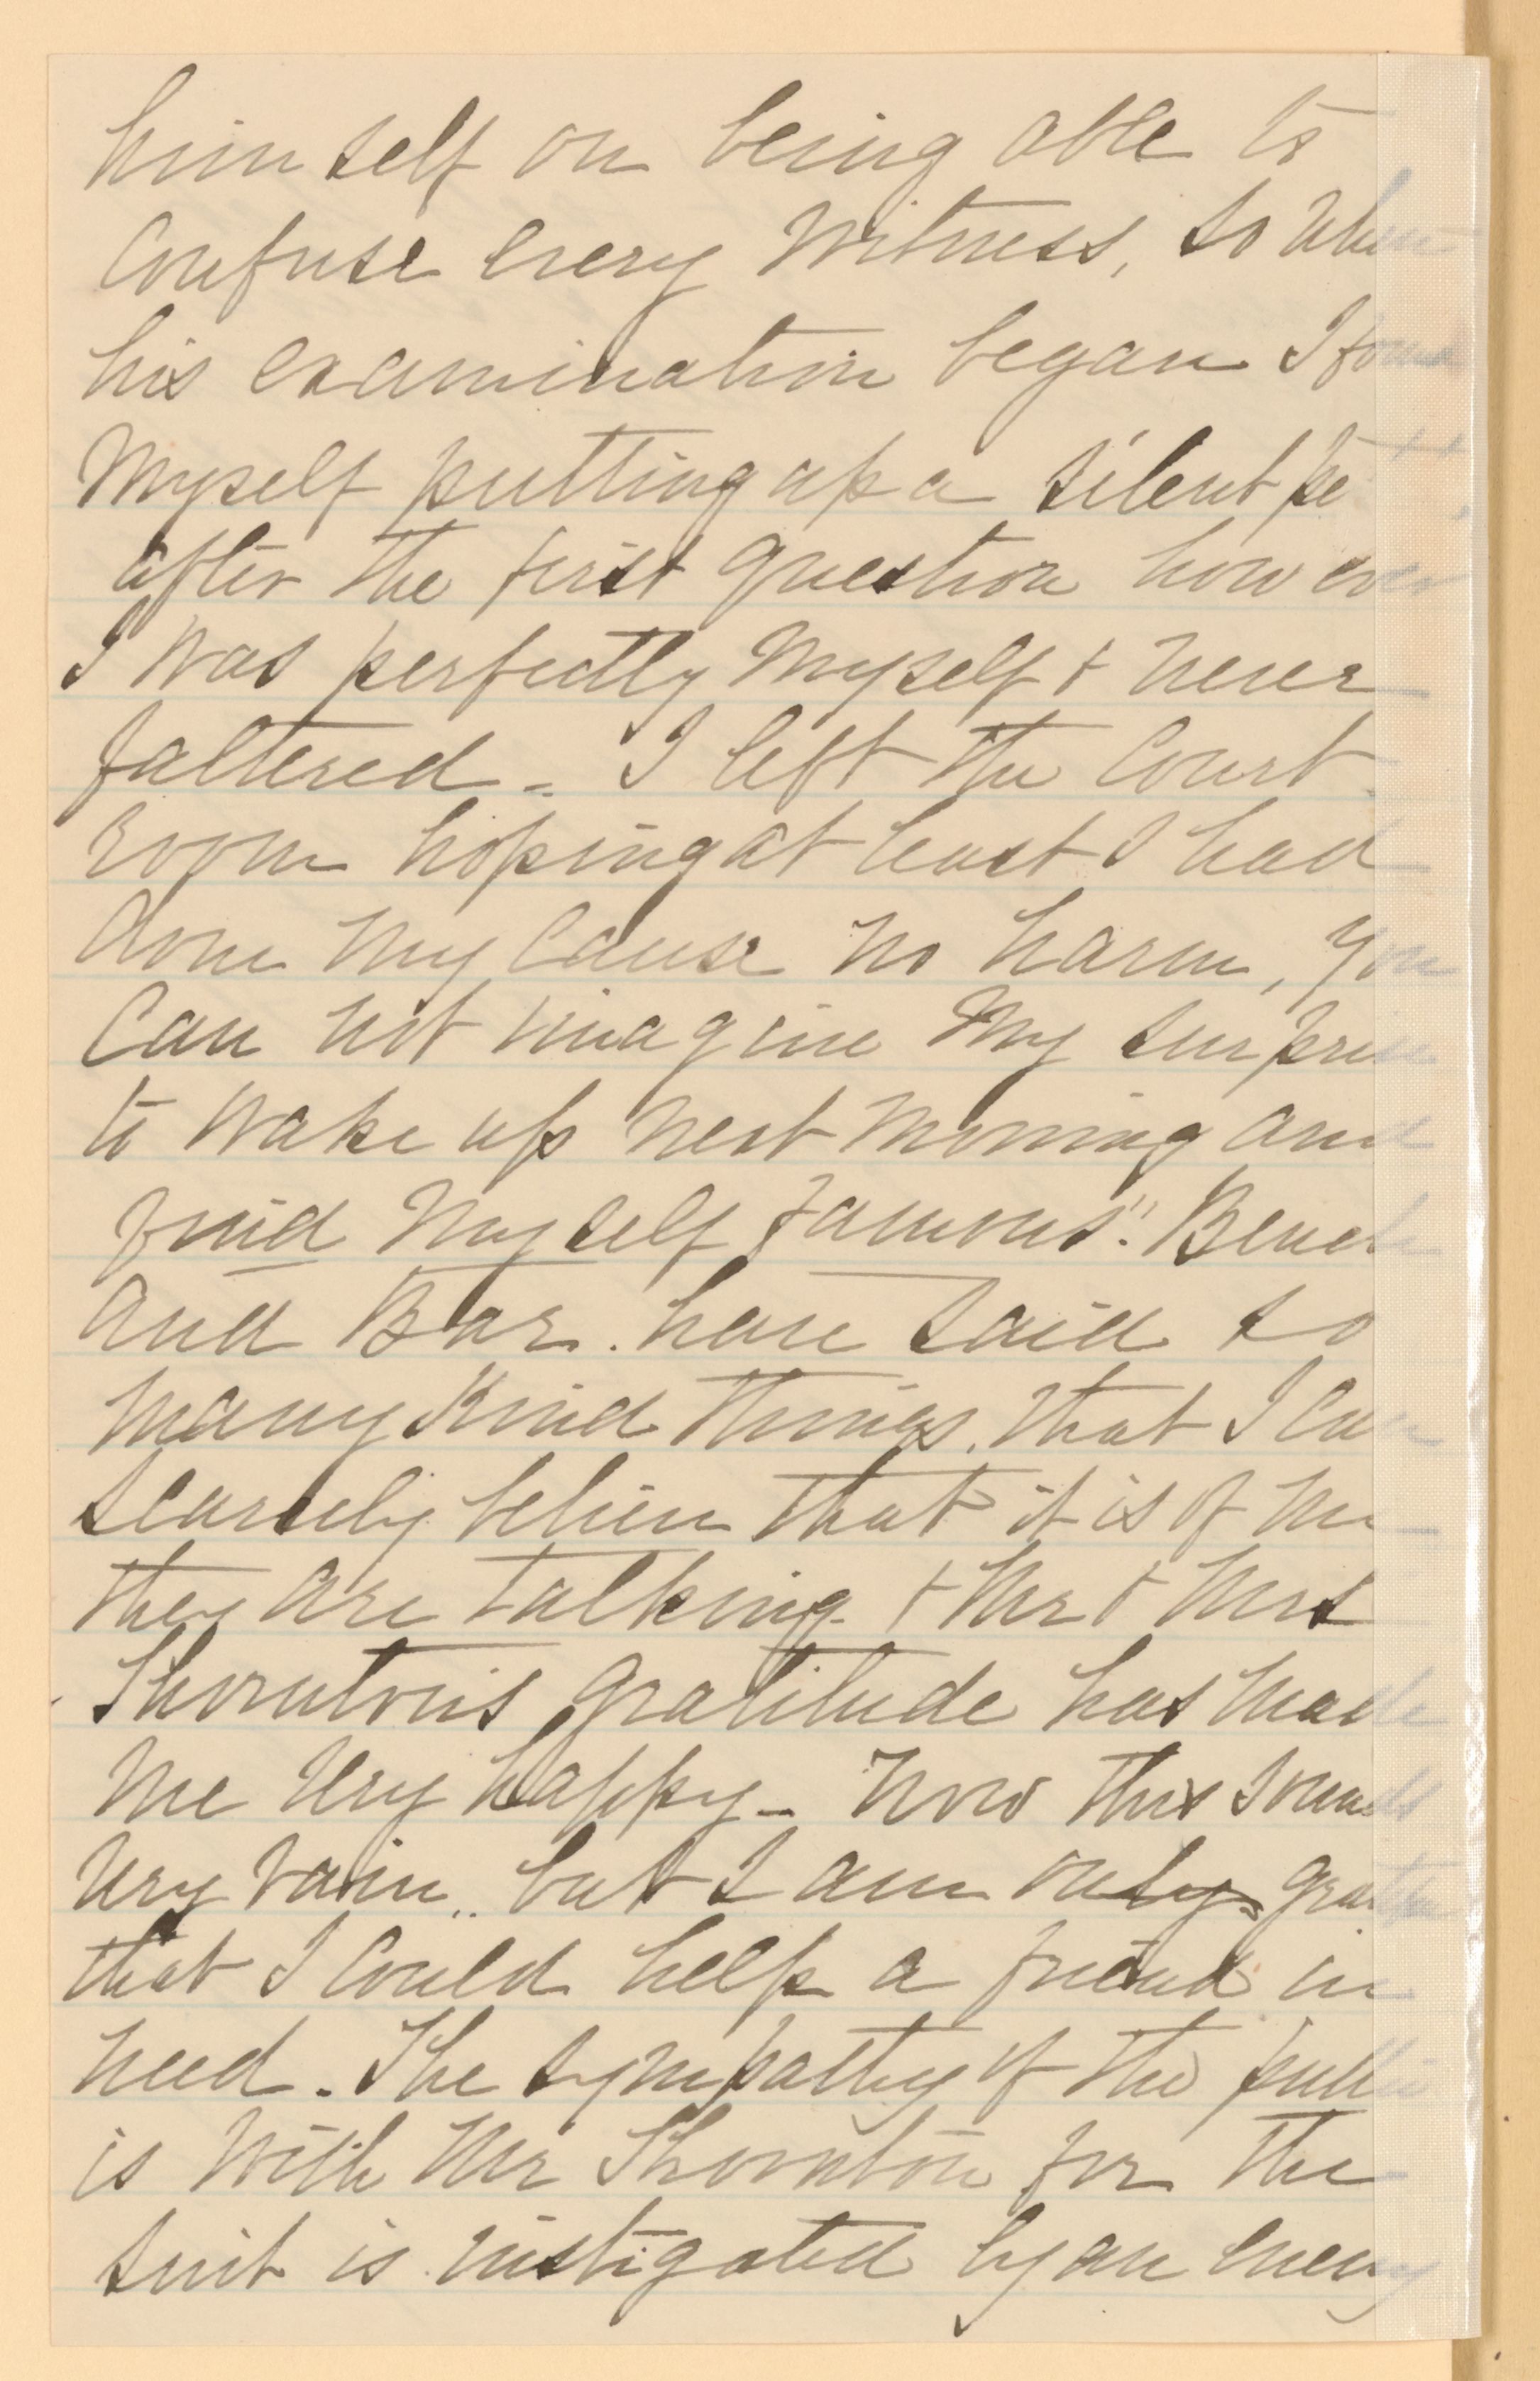 himself on being able to
Confuse every Witness, so When
his examination began I found
Myself putting up a silent pe
after the first question however
I was perfectly Myself + never
faltered - I left the Court
room hoping at least I had
done My Cause no harm, You
Can not imagine My surprise
to Wake up next Morning and
find Myself famous". Bench
And Bar. have said so
Many Kind things, that I Can
scarcely believe that it is of me
they are talking + Mr + Mrs
Thornton's gratitude has made
Me Very happy - Now this sounds
Very Vain, but I am only
that I Could help a friend in
Need. The sympathy of the public
is With Mr Thornton for the
suit is instigated by an enemy